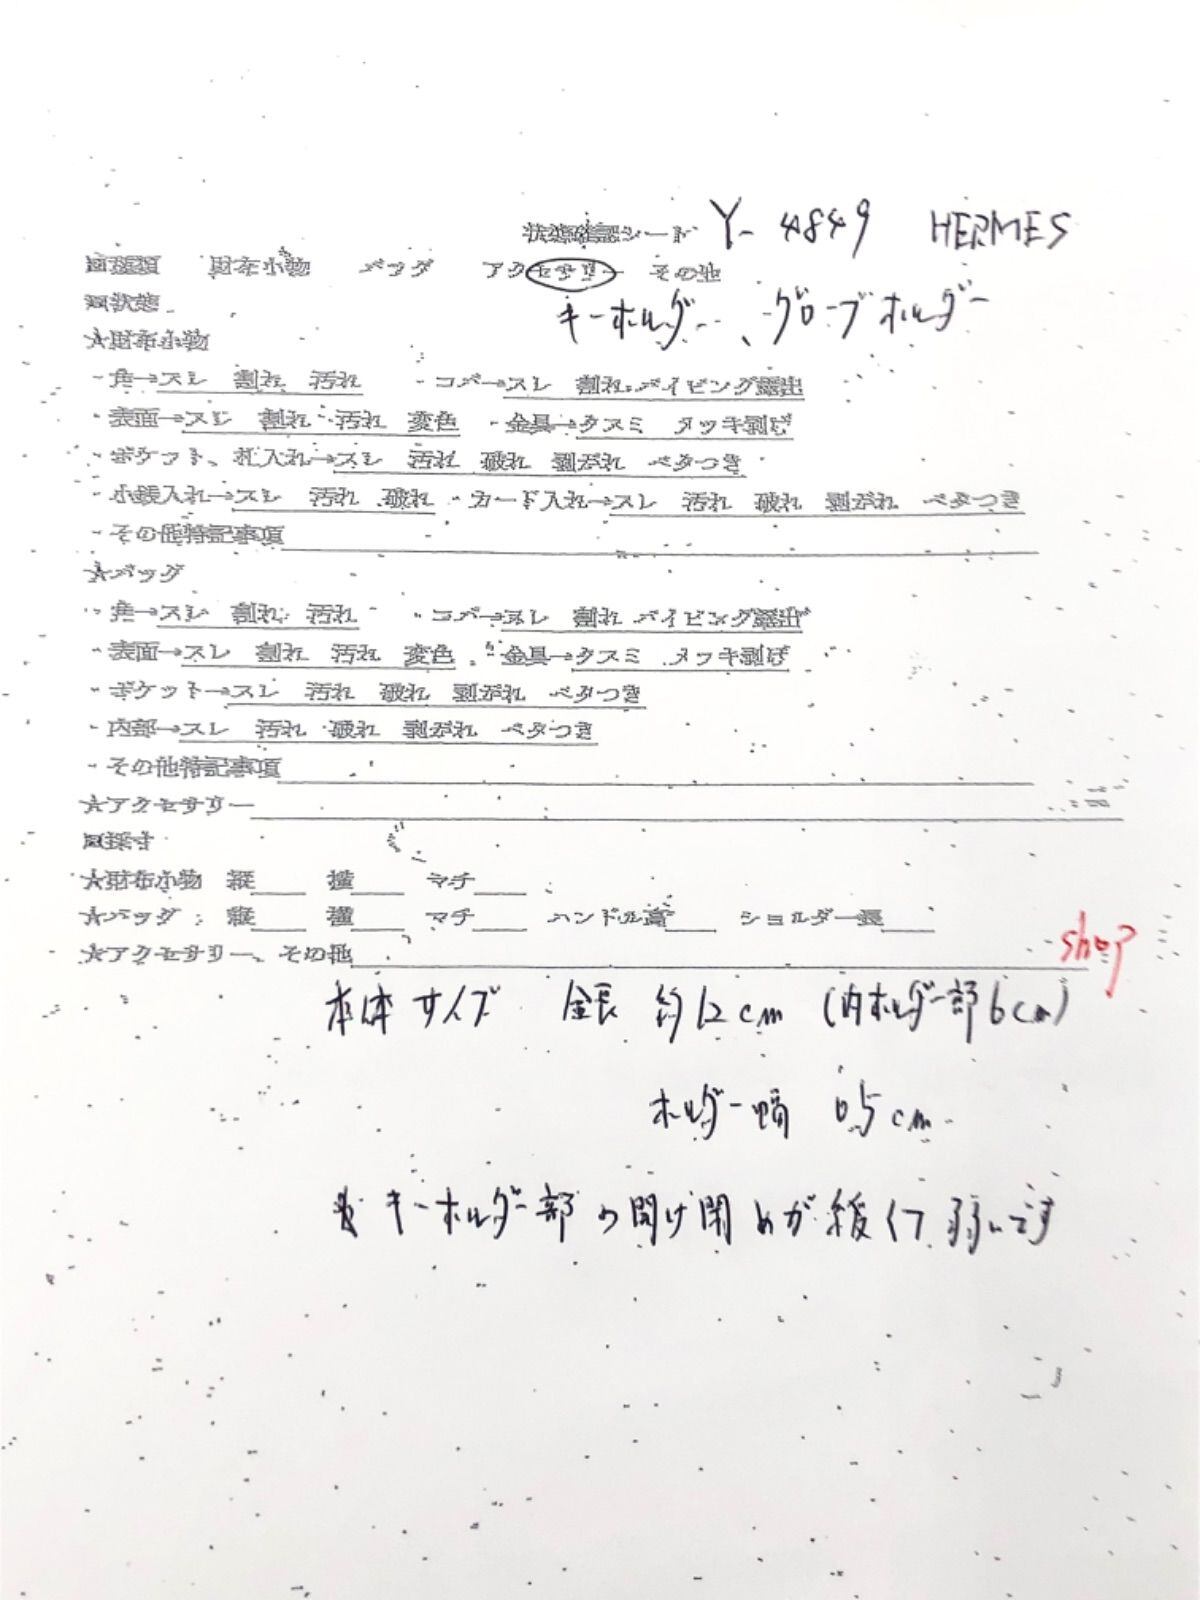 状態確認シート Y-4849 HERMES
■種類 財布小物 バッグ アクセサリー その他
■状態 キーホルダー、グローブホルダー
★財布小物
・角→スレ 割れ 汚れ ・コバ→スレ 割れ パイピング露出
・表面→スレ 割れ 汚れ 変色 ・金具→クスミ メッキ剥げ
・ポケット、札入れ→スレ 汚れ 破れ 剥がれ ベタつき
・小銭入れ→スレ 汚れ 破れ ・カード入れ→スレ 汚れ 破れ 剥がれ ベタつき
・その他特記事項
★バッグ
・角→スレ 割れ 汚れ ・コバ→スレ 割れ パイピング露出
・表面→スレ 割れ 汚れ 変色 ・金具→クスミ メッキ剥げ
・ポケット→スレ 汚れ 破れ 剥がれ ベタつき
・内部→スレ 汚れ 破れ 剥がれ ベタつき
・その他特記事項
★アクセサリー
■採寸
★財布小物 縦 横 マチ
★バッグ: 縦 横 マチ ハンドル高 ショルダー長
★アクセサリー、その他 shop
本体サイズ 全長 約12cm (内ホルダー部6cm)
ホルダー幅 0.5cm
★キーホルダー部の開け閉めが緩くて弱いです